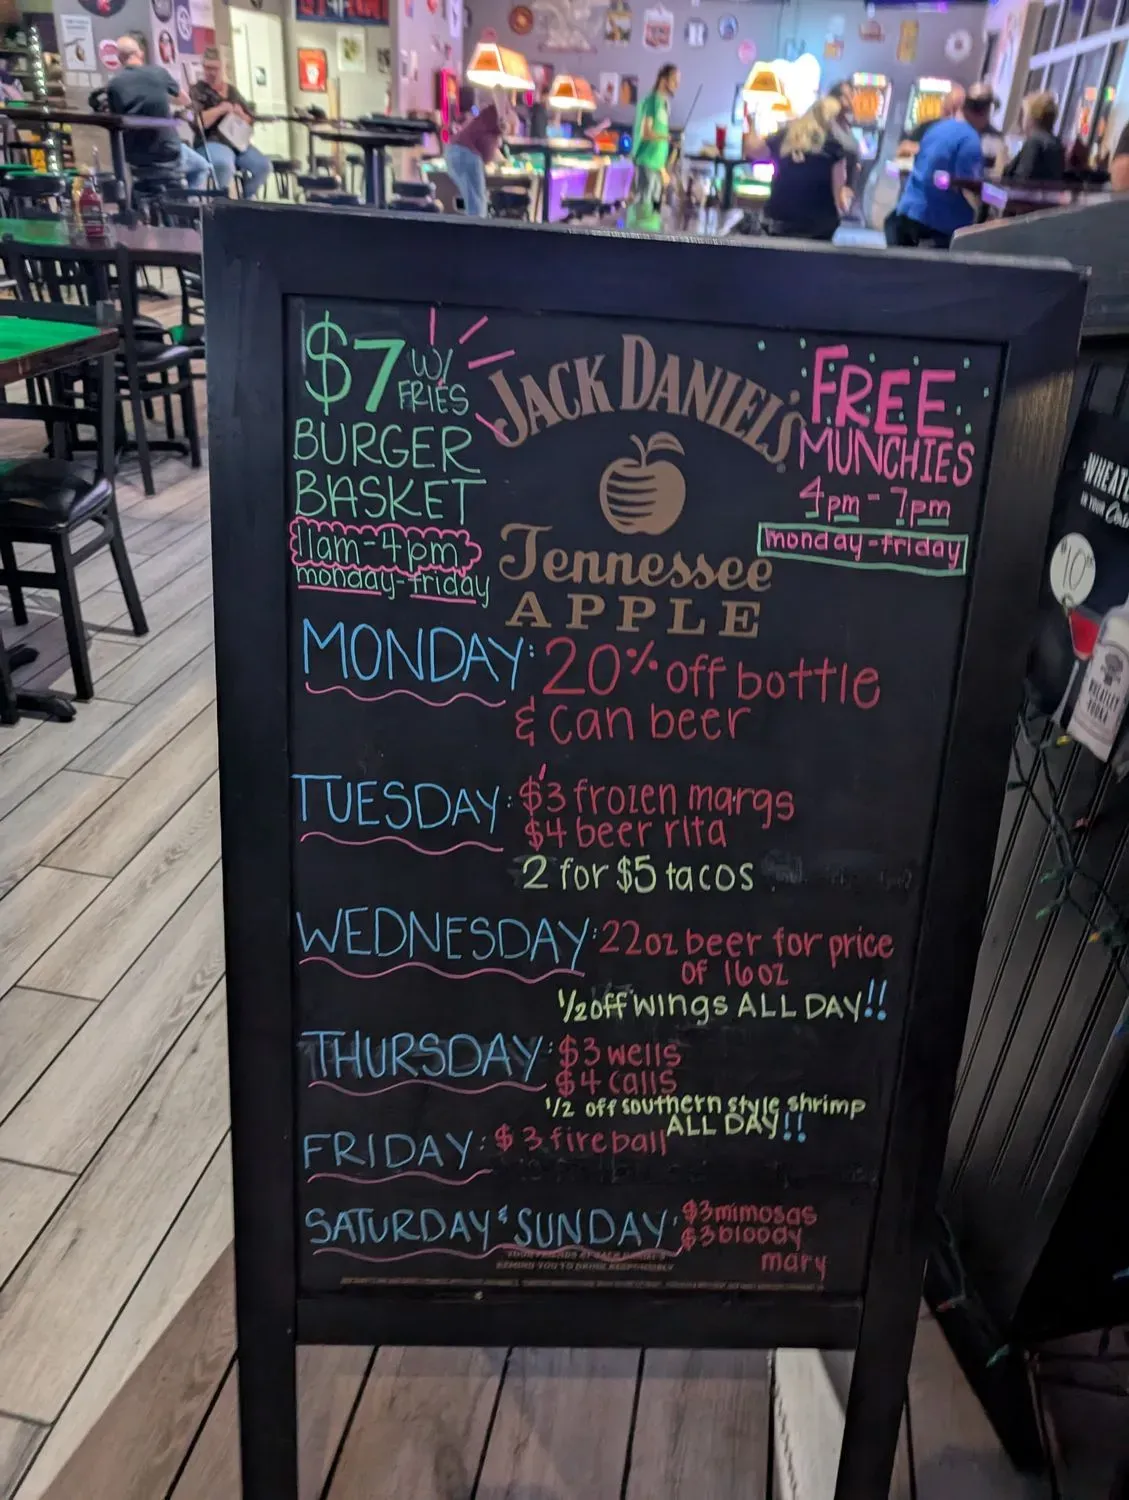 $7 W/
FRIES
BURGER
BASKET
11am-4pm
monday-friday
JACK DANIEL'S
Tennessee
APPLE
FREE
MUNCHIES
4pm-7pm
monday-friday
MONDAY: 20% off bottle
& can beer
TUESDAY: $3 frozen margs
$4 beer rita
2 for $5 tacos
WEDNESDAY: 22oz beer for price
of 16oz
1/2 off wings ALL DAY!!
THURSDAY: $3 wells
$4 calls
1/2 off southern style shrimp
ALL DAY!!
FRIDAY: $3 fireball
SATURDAY & SUNDAY: $3 mimosas
$3 bloody
mary
YOUR FRIENDS AT JACK DANIEL'S
REMIND YOU TO DRINK RESPONSIBLY
$10